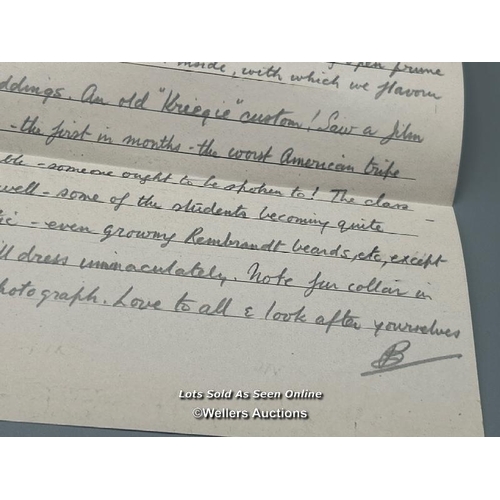 open prune
inside, with which we flavour
ddings. An old "Kriegie" custom! Saw a film
- the first in months - the worst American tripe
ble - someone ought to be spoken to! The class -
well - some of the students becoming quite
tic - even growing Rembrandt beards, etc, except
ll dress immaculately. Note fur collar in
hotograph. Love to all & look after yourselves
B
Lots Sold As Seen Online
©Wellers Auctions